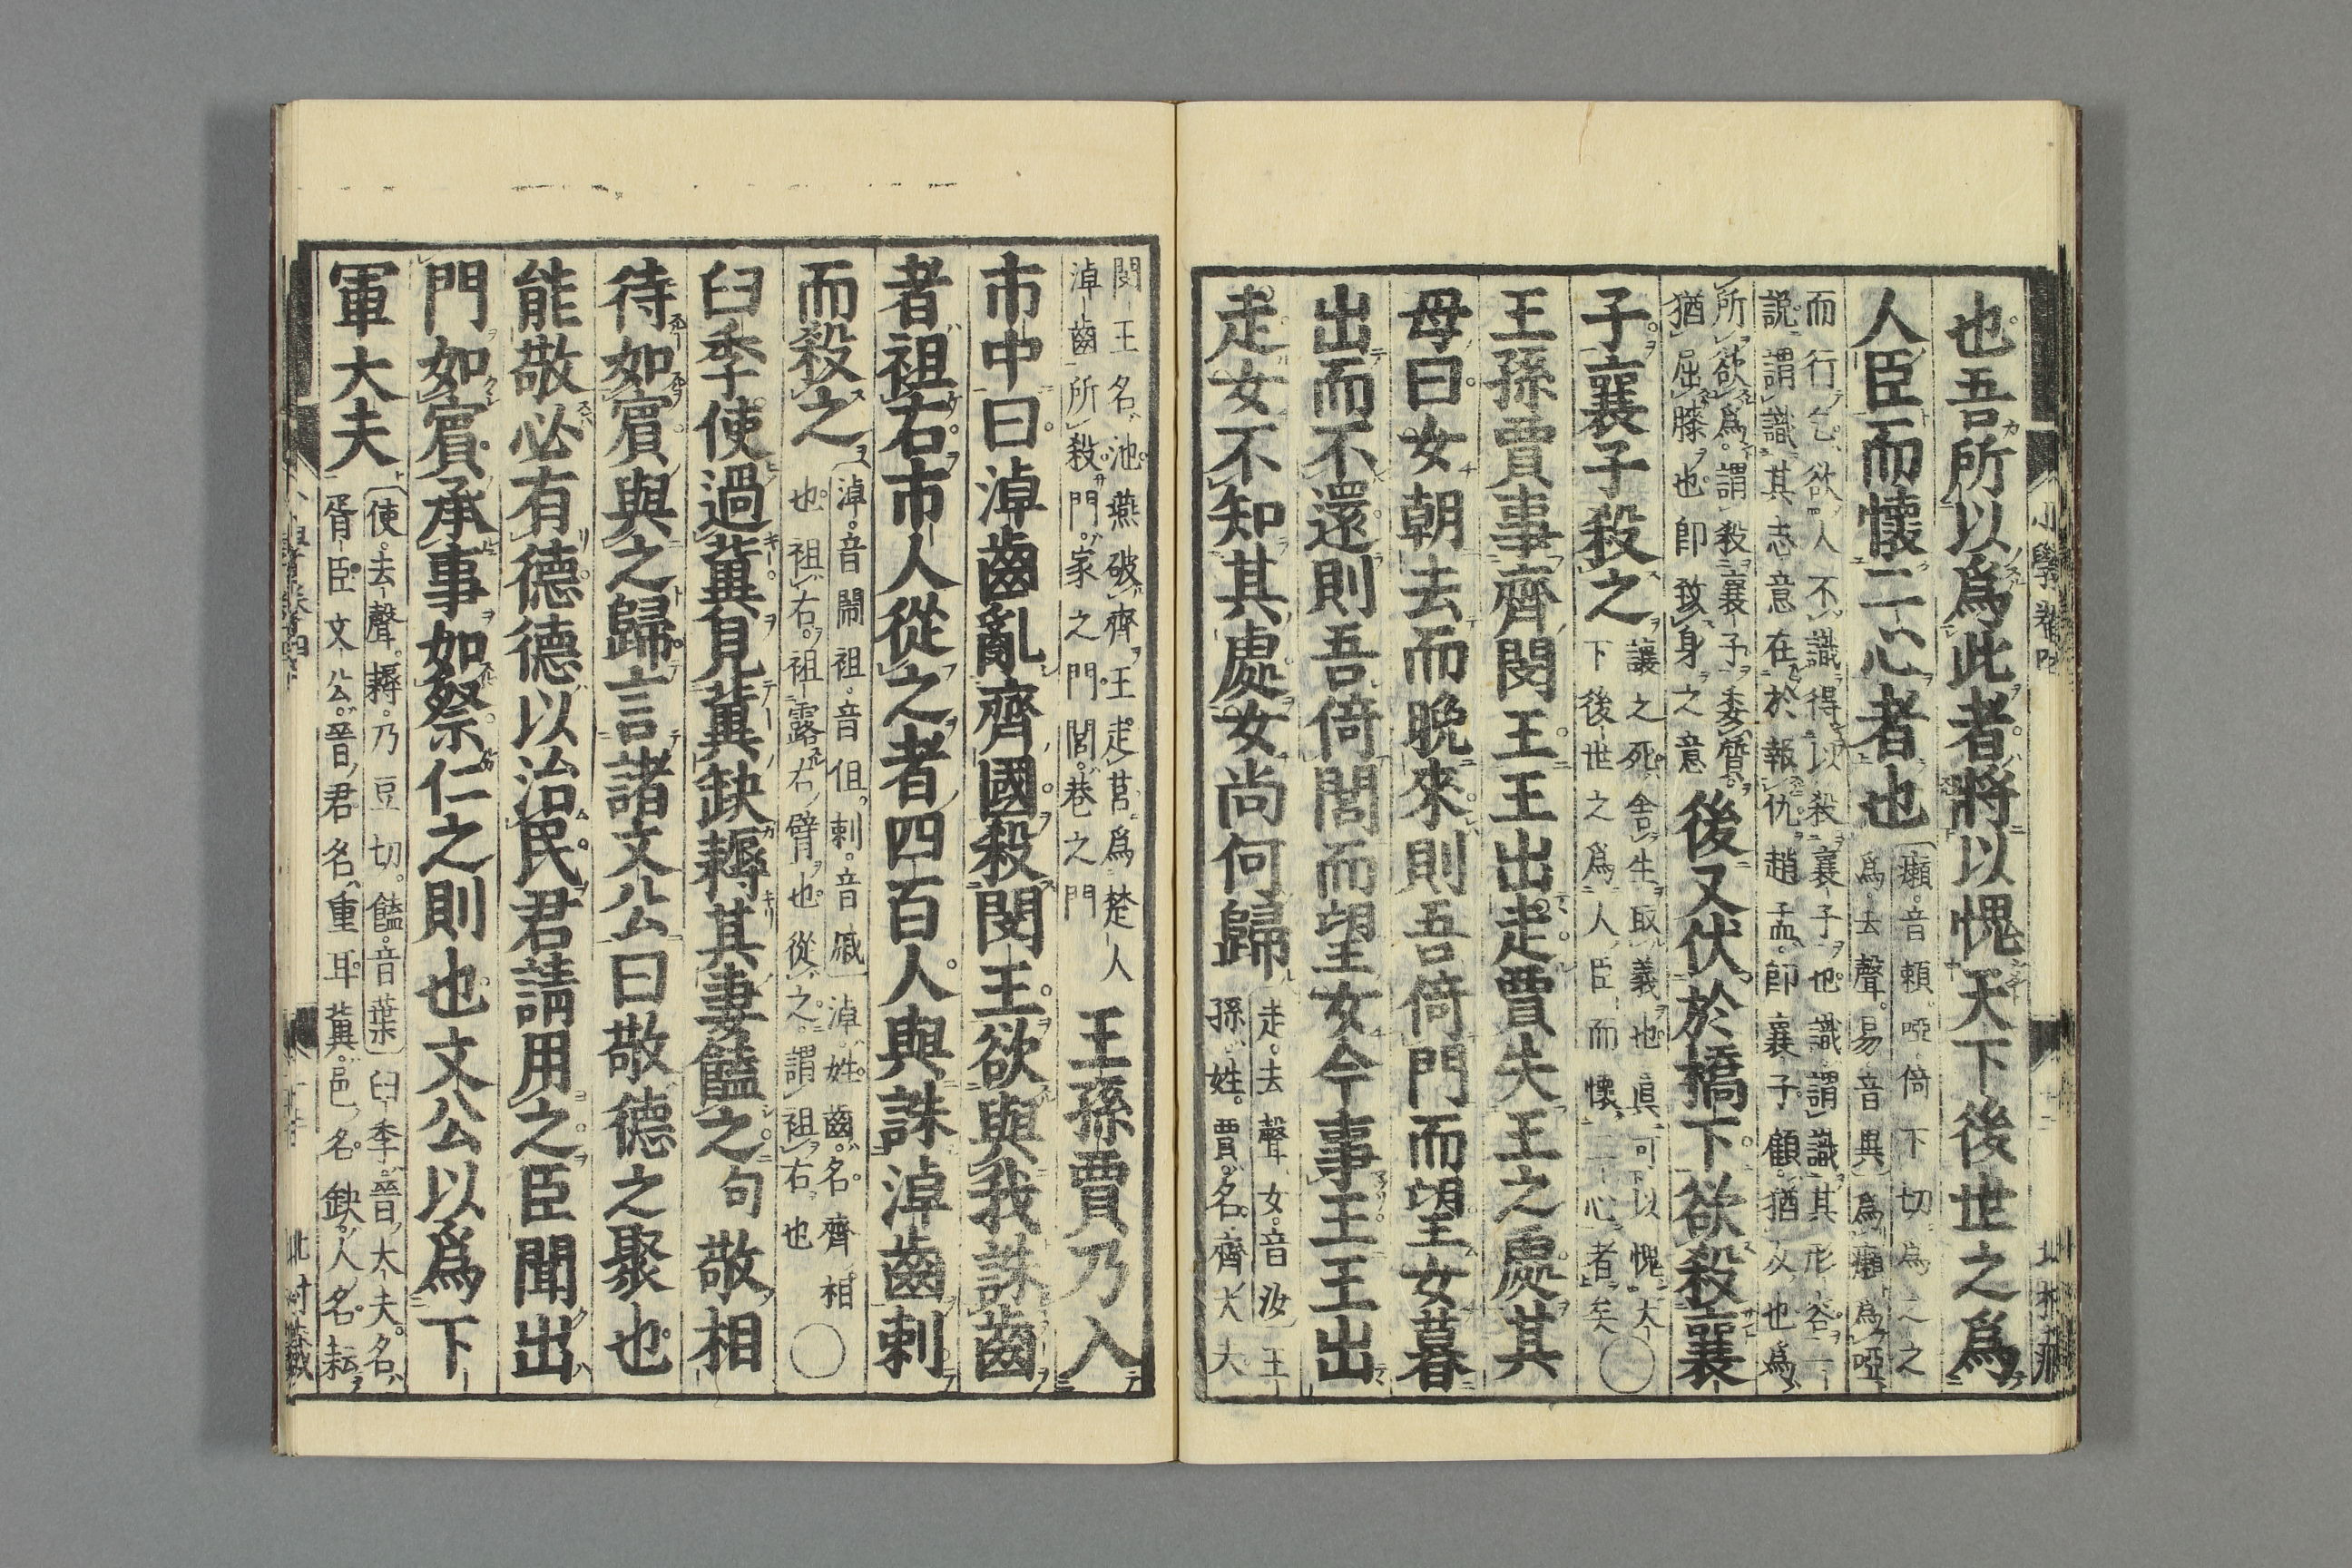 也吾所以爲此者將以愧天下後世之爲
人臣而懷二心者也
癩音頼啞倚下切爲之之
爲去聲易音異爲癩爲啞
而行乞欲人不識得以殺襄子也識謂識其形容一
説謂識其志意在於報仇趙孟即襄子顧猶反也爲
所欲爲謂殺襄子委質
猶屈膝也卽致身之意
後又伏於橋下欲殺襄
子襄子殺之
讓之死舍生取義也眞可以愧天
下後世之爲人臣而懷二心者矣
〇
王孫賈事齊閔王王出走賈失王之處其
母曰女朝去而晚來則吾倚門而望女暮
出而不還則吾倚閭而望女今事王王出
走女不知其處女尚何歸
走去聲女音汝王
孫姓賈名齊大夫
閔王名池燕破齊王走莒爲楚人
淖齒所殺門家之門閭巷之門
王孫賈乃入
市中曰淖齒亂齊國殺閔王欲與我誅齒
者袒右市人從之者四百人與誅淖齒刺
而殺之
淖音閙袒音但刺音戚淖姓齒名齊相
也袒右袒露右臂也從之謂袒右也
〇
臼季使過冀見冀缺耨其妻饁之句敬相
待如賓與之歸言諸文公曰敬德之聚也
能敬必有德德以治民君請用之臣聞出
門如賓承事如祭仁之則也文公以爲下
軍大夫
使去聲耨乃豆切饁音葉臼季晉大夫名
胥臣文公晉君名重耳冀邑名缺人名耘
小學卷四